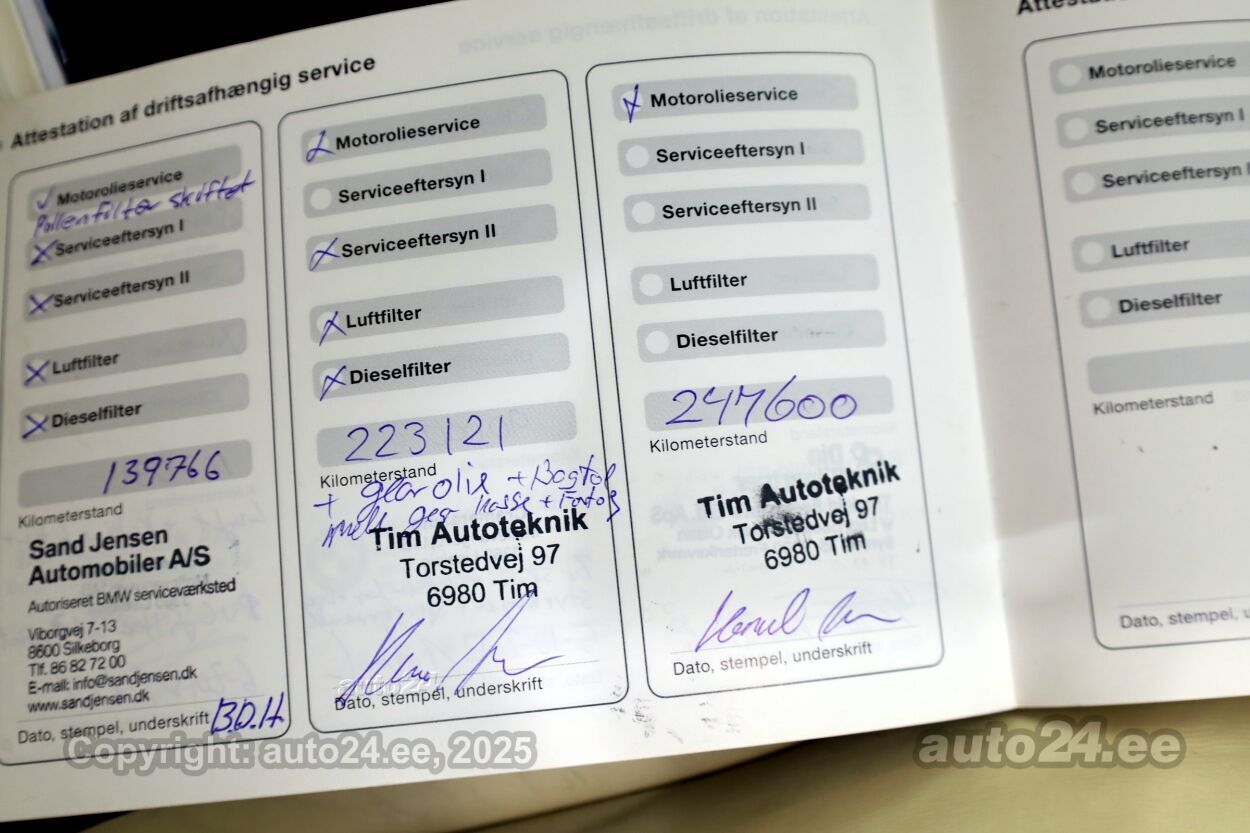 Attestation af driftsafhængig service
Motorolieservice
Pollenfilter skiftet
Serviceeftersyn I
Serviceeftersyn II
Luftfilter
Dieselfilter
139766
Kilometerstand
Sand Jensen
Automobiler A/S
Autoriseret BMW serviceværksted
Viborgvej 7-13
8600 Silkeborg
Tlf. 86 82 72 00
E-mail: info@sandjensen.dk
www.sandjensen.dk
Dato, stempel, underskrift
Motorolieservice
Serviceeftersyn I
Serviceeftersyn II
Luftfilter
Dieselfilter
223121
Kilometerstand
+ gearolie +
Tim Autoteknik
Torstedvej 97
6980 Tim
Dato, stempel, underskrift
Motorolieservice
Serviceeftersyn I
Serviceeftersyn II
Luftfilter
Dieselfilter
247600
Kilometerstand
Tim Autoteknik
Torstedvej 97
6980 Tim
Dato, stempel, underskrift
Motorolieservice
Serviceeftersyn I
Serviceeftersyn
Luftfilter
Dieselfilter
Kilometerstand
Dato, stempel,
Copyright: auto24.ee, 2025
auto24.ee